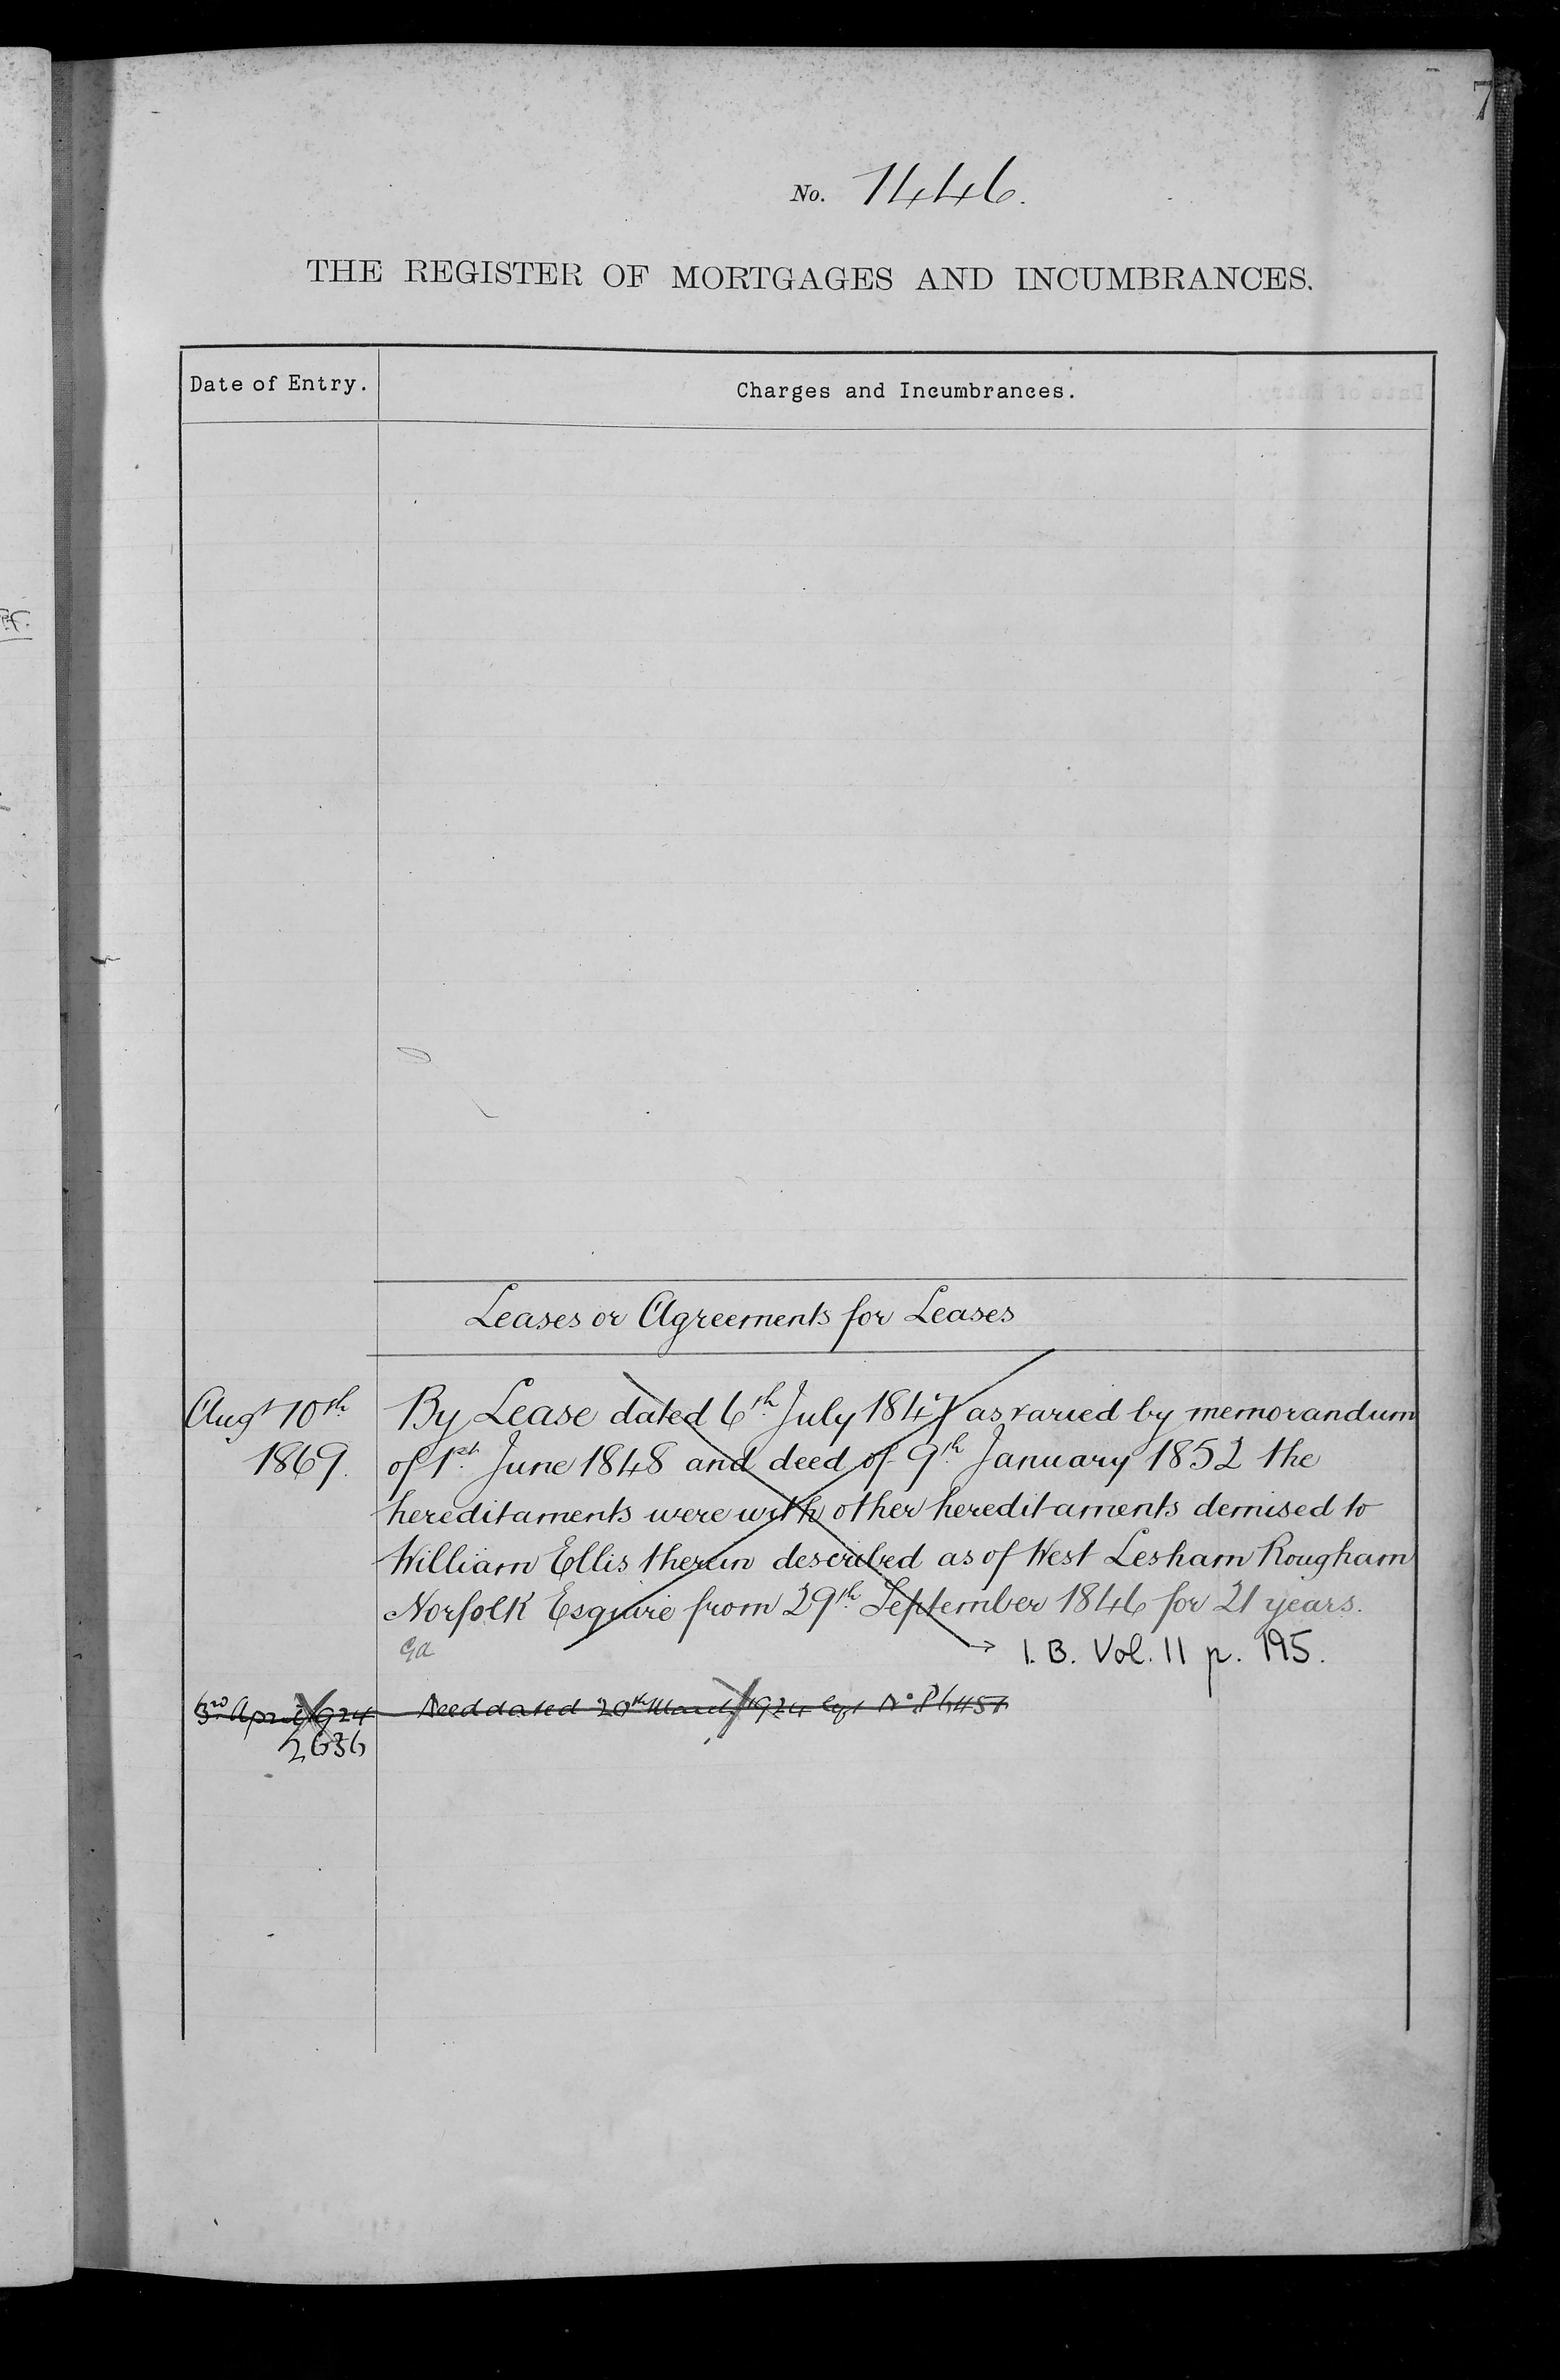 7
No. 1446.
THE REGISTER OF MORTGAGES AND INCUMBRANCES.
Date of Entry.
Charges and Incumbrances.
Leases or Agreements for Leases
Augt 10th 1869.
By Lease dated 6th July 1847 as varied by memorandum
of 1st June 1848 and deed of 9th January 1852 the
hereditaments were with other hereditaments demised to
William Ellis therein described as of West Lesham Rougham
Norfolk Esquire from 29th September 1846 for 21 years.
Ga
I. B. Vol. 11 p. 195.
3rd April 1924
Deed dated 20th March 1924 No
2636